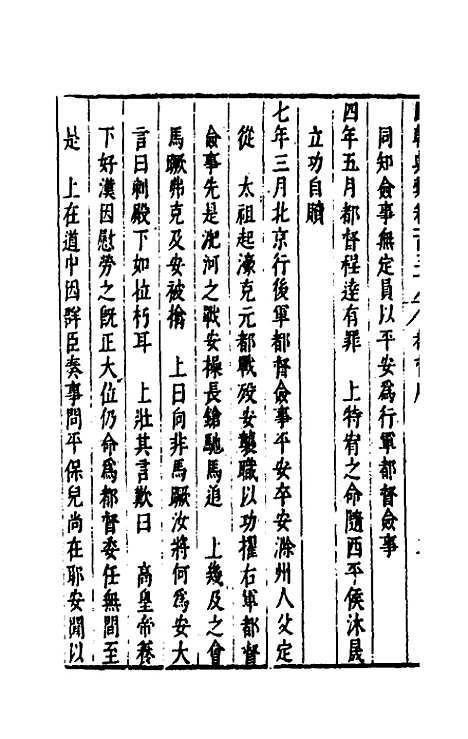 同知僉事無定員以平安爲行軍都督僉事
四年五月都督程達有罪　上特宥之命隨西平侯沐晟
立功自贖
七年三月北京行後軍都督僉事平安卒安滁州人父定
從　太祖起濠克元都戰歿安襲職以功擢右軍都督
僉事先是淝河之戰安操長鎗馳馬追　上幾及之會
馬蹶弗克及安被擒　上曰向非馬蹶汝將何爲安大
言曰刺殿下如拉朽耳　上壯其言歎曰　高皇帝養
下好漢因慰勞之旣正大位仍命爲都督委任無間至
是　上在道中因羣臣奏事問平保兒尚在耶安聞以